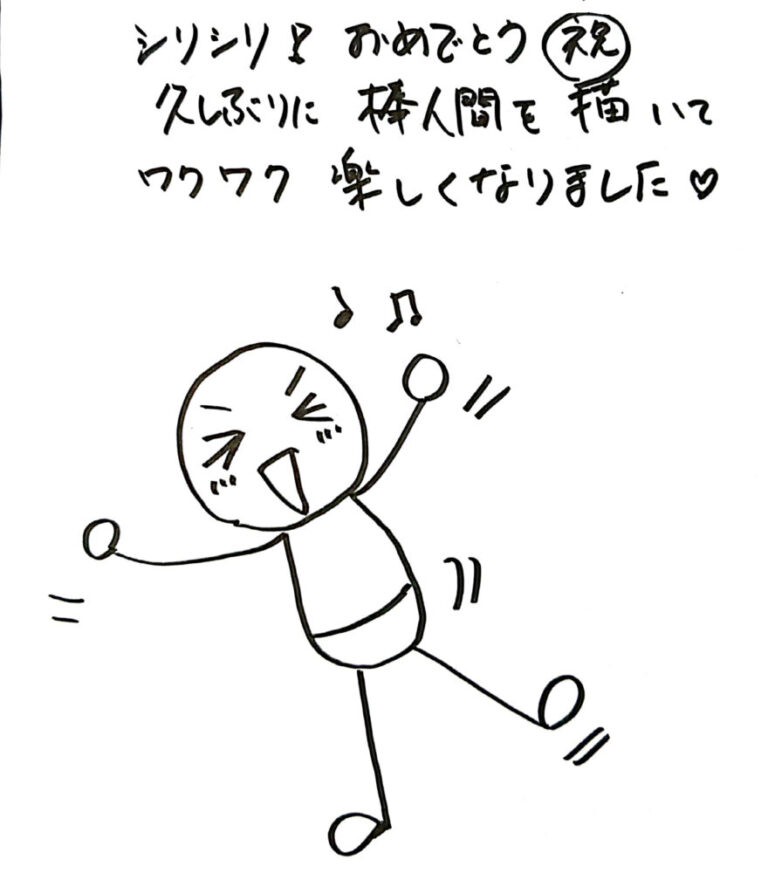 シリシリ! おめでとう ㊗
久しぶりに 棒人間を 描いて
ワクワク 楽しくなりました♡